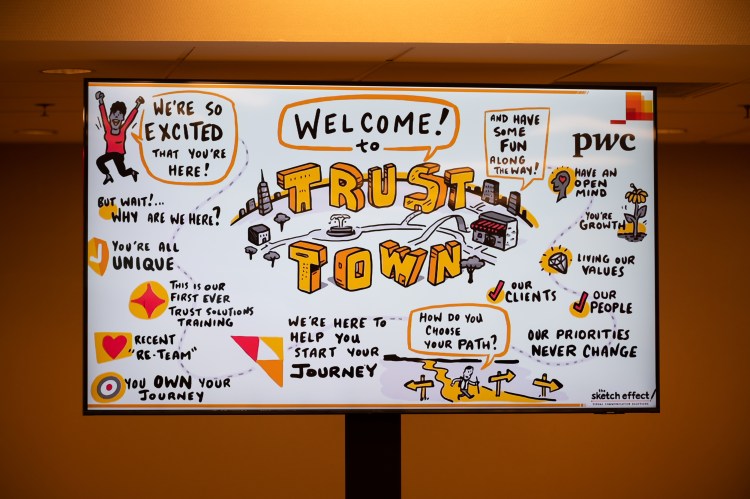 WE'RE SO
EXCITED
THAT YOU'RE
HERE!
WELCOME!
to
TRUST
TOWN
AND HAVE
SOME
FUN
ALONG
THE WAY!
pwc
BUT WAIT!...
WHY ARE WE HERE?
YOU'RE ALL
UNIQUE
THIS IS OUR
FIRST EVER
TRUST SOLUTIONS
TRAINING
RECENT
"RE-TEAM"
YOU OWN YOUR
JOURNEY
WE'RE HERE TO
HELP YOU
START YOUR
JOURNEY
HOW DO YOU
CHOOSE
YOUR PATH?
HAVE AN
OPEN
MIND
YOU'RE
GROWTH
LIVING OUR
VALUES
OUR
CLIENTS
OUR
PEOPLE
OUR PRIORITIES
NEVER CHANGE
the
sketch effect